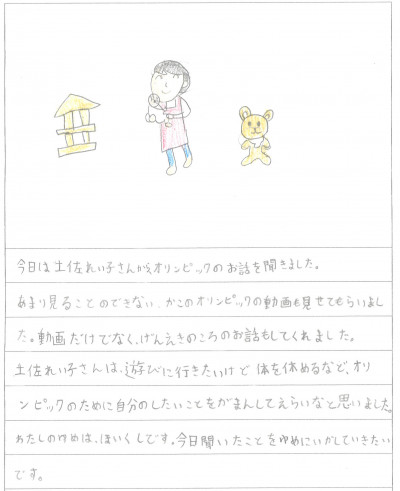 今日は土佐れい子さんからオリンピックのお話を聞きました。
あまり見ることのできない、かこのオリンピックの動画も見せてもらいまし
た。動画だけでなく、げんえきのころのお話もしてくれました。
土佐れい子さんは、遊びに行きたいけど体を休めるなど、オリ
ンピックのために自分のしたいことをがまんしてえらいなと思いました。
わたしのゆめは、ほいくしです。今日聞いたことをゆめにいかしていきたい
です。